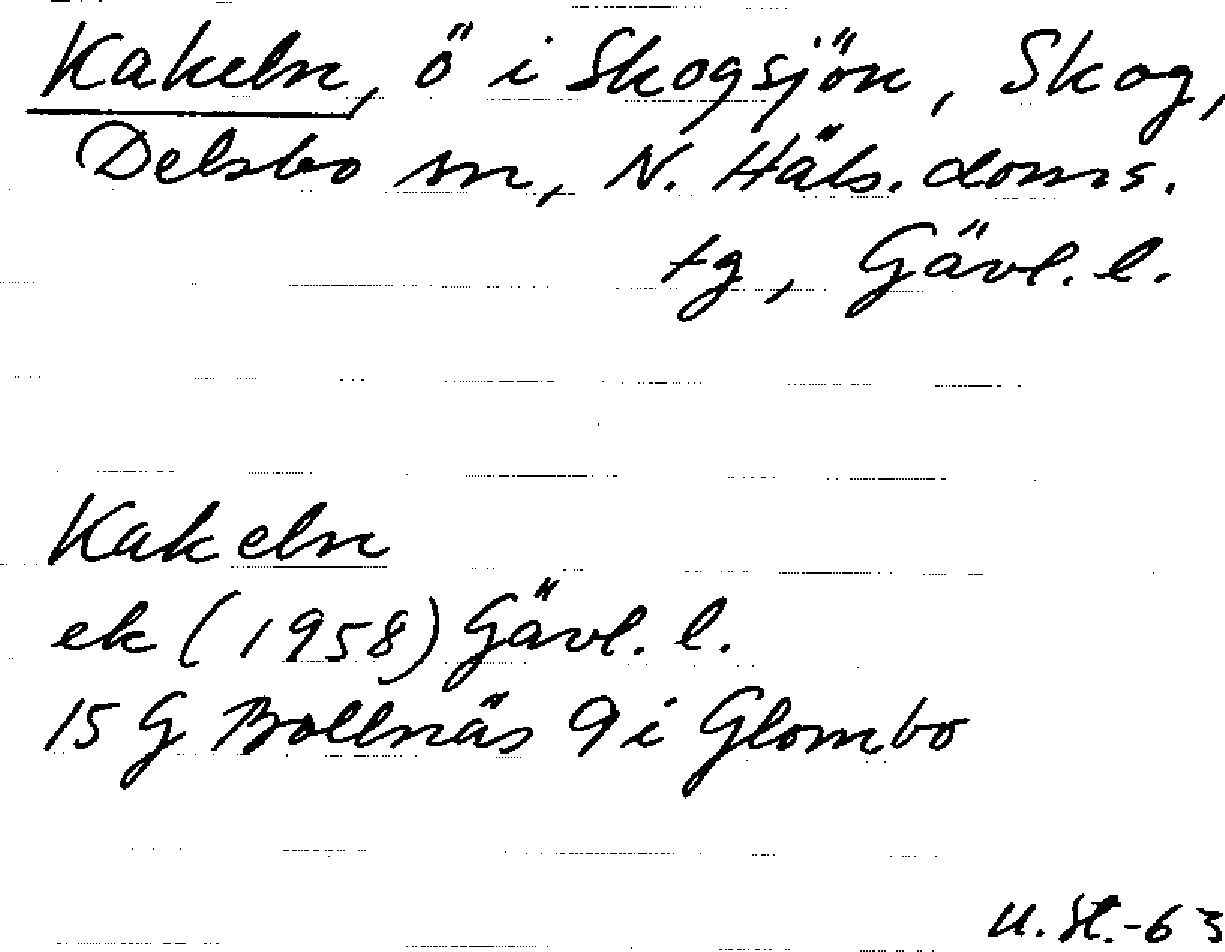 Kakeln, ö i Skogsjön, Skog,
Delsbo sn, N. Häls. doms.
tg, Gävl. l.
Kakeln
ek (1958) Gävl. l.
15 G Bollnäs 9 i Glombo
U. St.-63